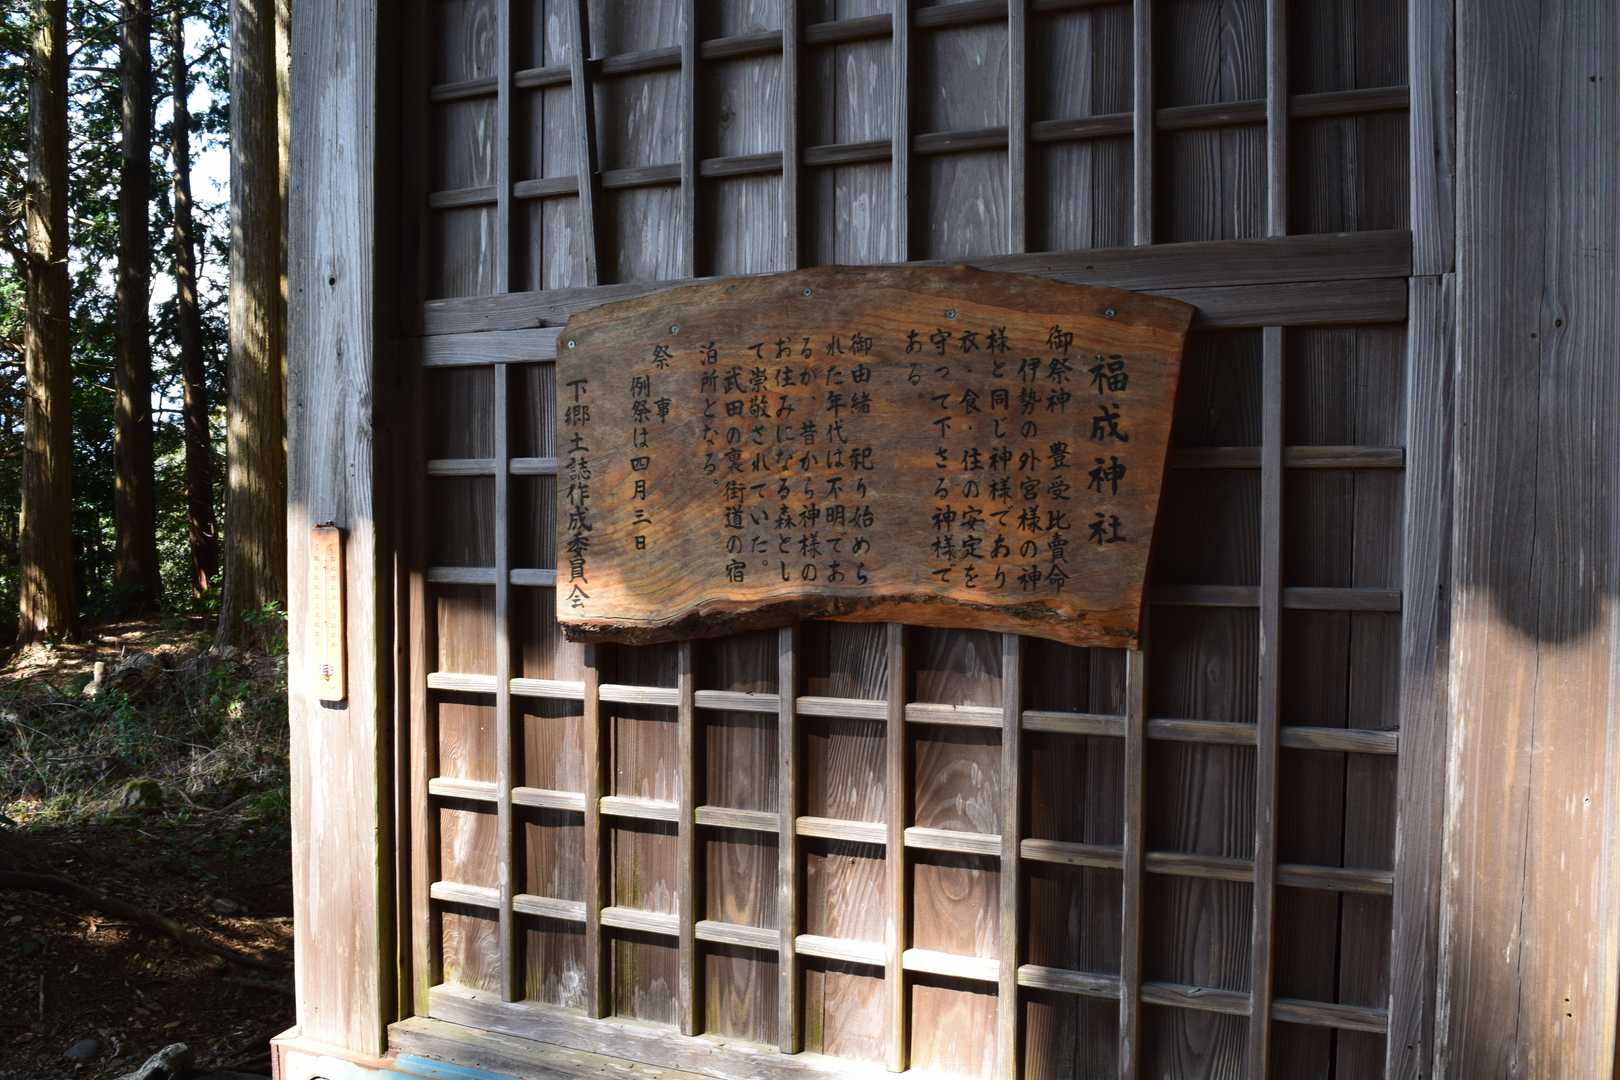 福成神社
御祭神　豊受比賣命
伊勢の外宮様の神
様と同じ神様であり
衣・食・住の安定を
守って下さる神様で
ある。
御由緒　祀り始めら
れた年代は不明であ
るが、昔から神様の
お住みになる森とし
て崇敬されていた。
武田の裏街道の宿
泊所となる。
祭事
例祭は四月三日
下郷土誌作成委員会